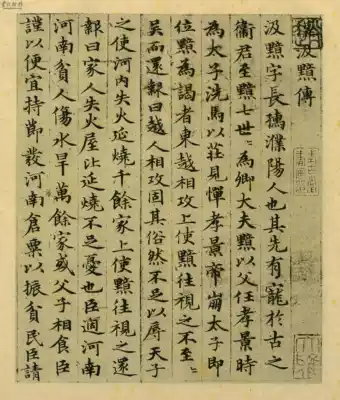 汲黯傳
汲黯字長孺濮陽人也其先有寵於古之
衛君至黯七世〻為卿大夫黯以父任孝景時
為太子洗馬以莊見憚孝景帝崩太子即
位黯為謁者東越相攻上使黯往視之不至〻
吳而還報曰越人相攻固其俗然不足以辱天子
之使河內失火延燒千餘家上使黯往視之還
報曰家人失火屋比延燒不足憂也臣過河南
河南貧人傷水旱萬餘家或父子相食臣
謹以便宜持節發河南倉粟以振貧民臣請